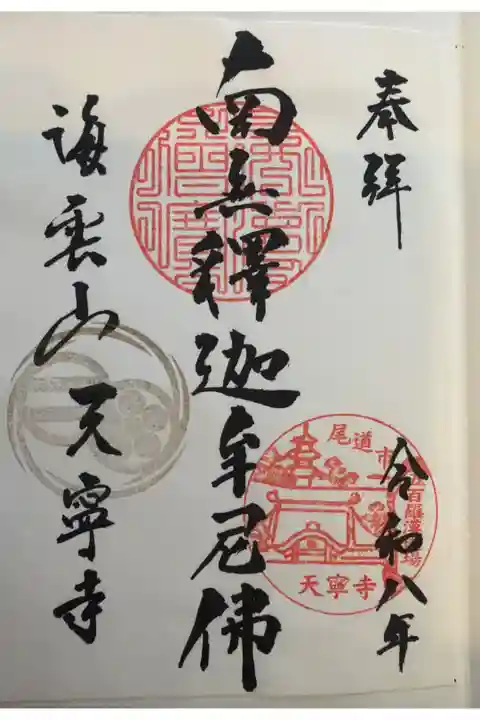 奉拝
令和八年
南無釋迦牟尼佛
海雲山天寧寺
尾道市
五百羅漢
天寧寺